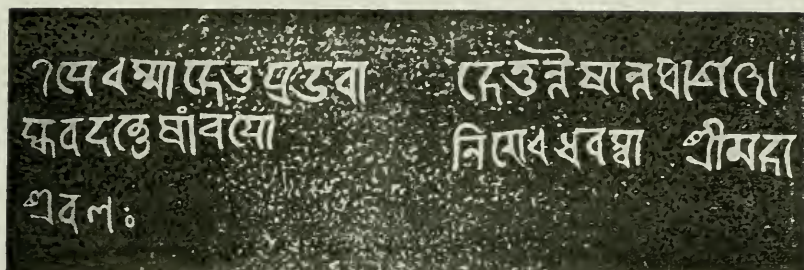 ৭যে ধম্মা হেতু প্রভবা হেতুন্তেষান্তথাগতো
হ্যবদত্তেষাংচযো নিরোধএবম্বা দীমহা
শ্রবণঃ